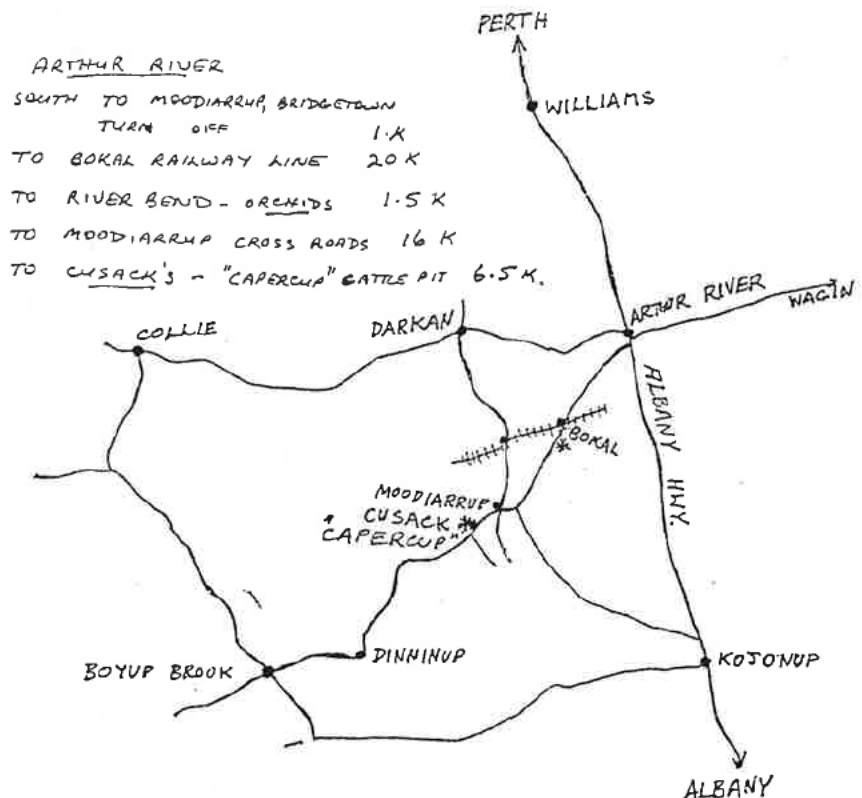 ARTHUR RIVER
SOUTH TO MOODIARRUP, BRIDGETOWN
TURN OFF 1.K
TO BOKAL RAILWAY LINE 20 K
TO RIVER BEND - ORCHIDS 1.5 K
TO MOODIARRUP CROSS ROADS 16 K
TO CUSACK'S - "CAPERCUP" CATTLE PIT 6.5 K.
PERTH
WILLIAMS
ARTHUR RIVER
WAGIN
COLLIE
DARKAN
ALBANY HWY.
BOKAL
MOODIARRUP
CUSACK
"CAPERCUP"
BOYUP BROOK
DINNINUP
KOJONUP
ALBANY